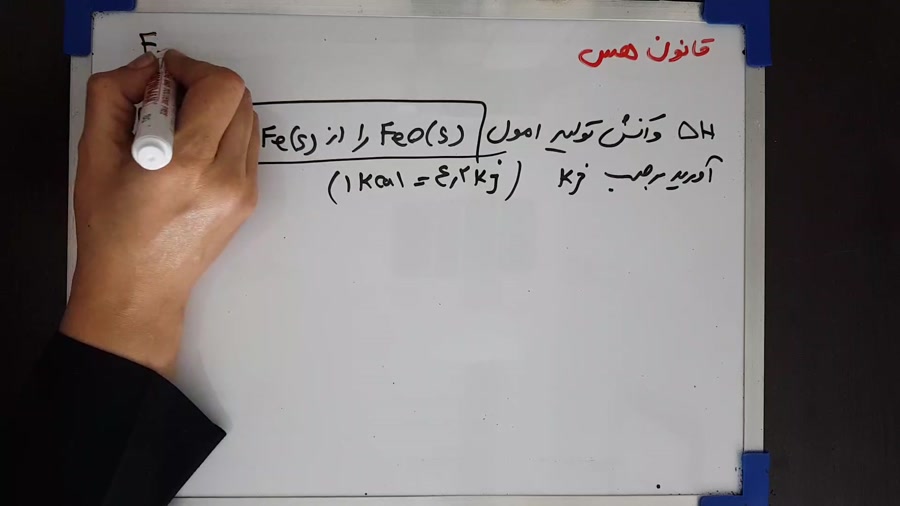 قانون هس
ΔH واکنش تولید ۱مول FeO(s) را از Fe(s)
آورید برحسب kj (۱ kcal = ۴٫۲ kj)
F